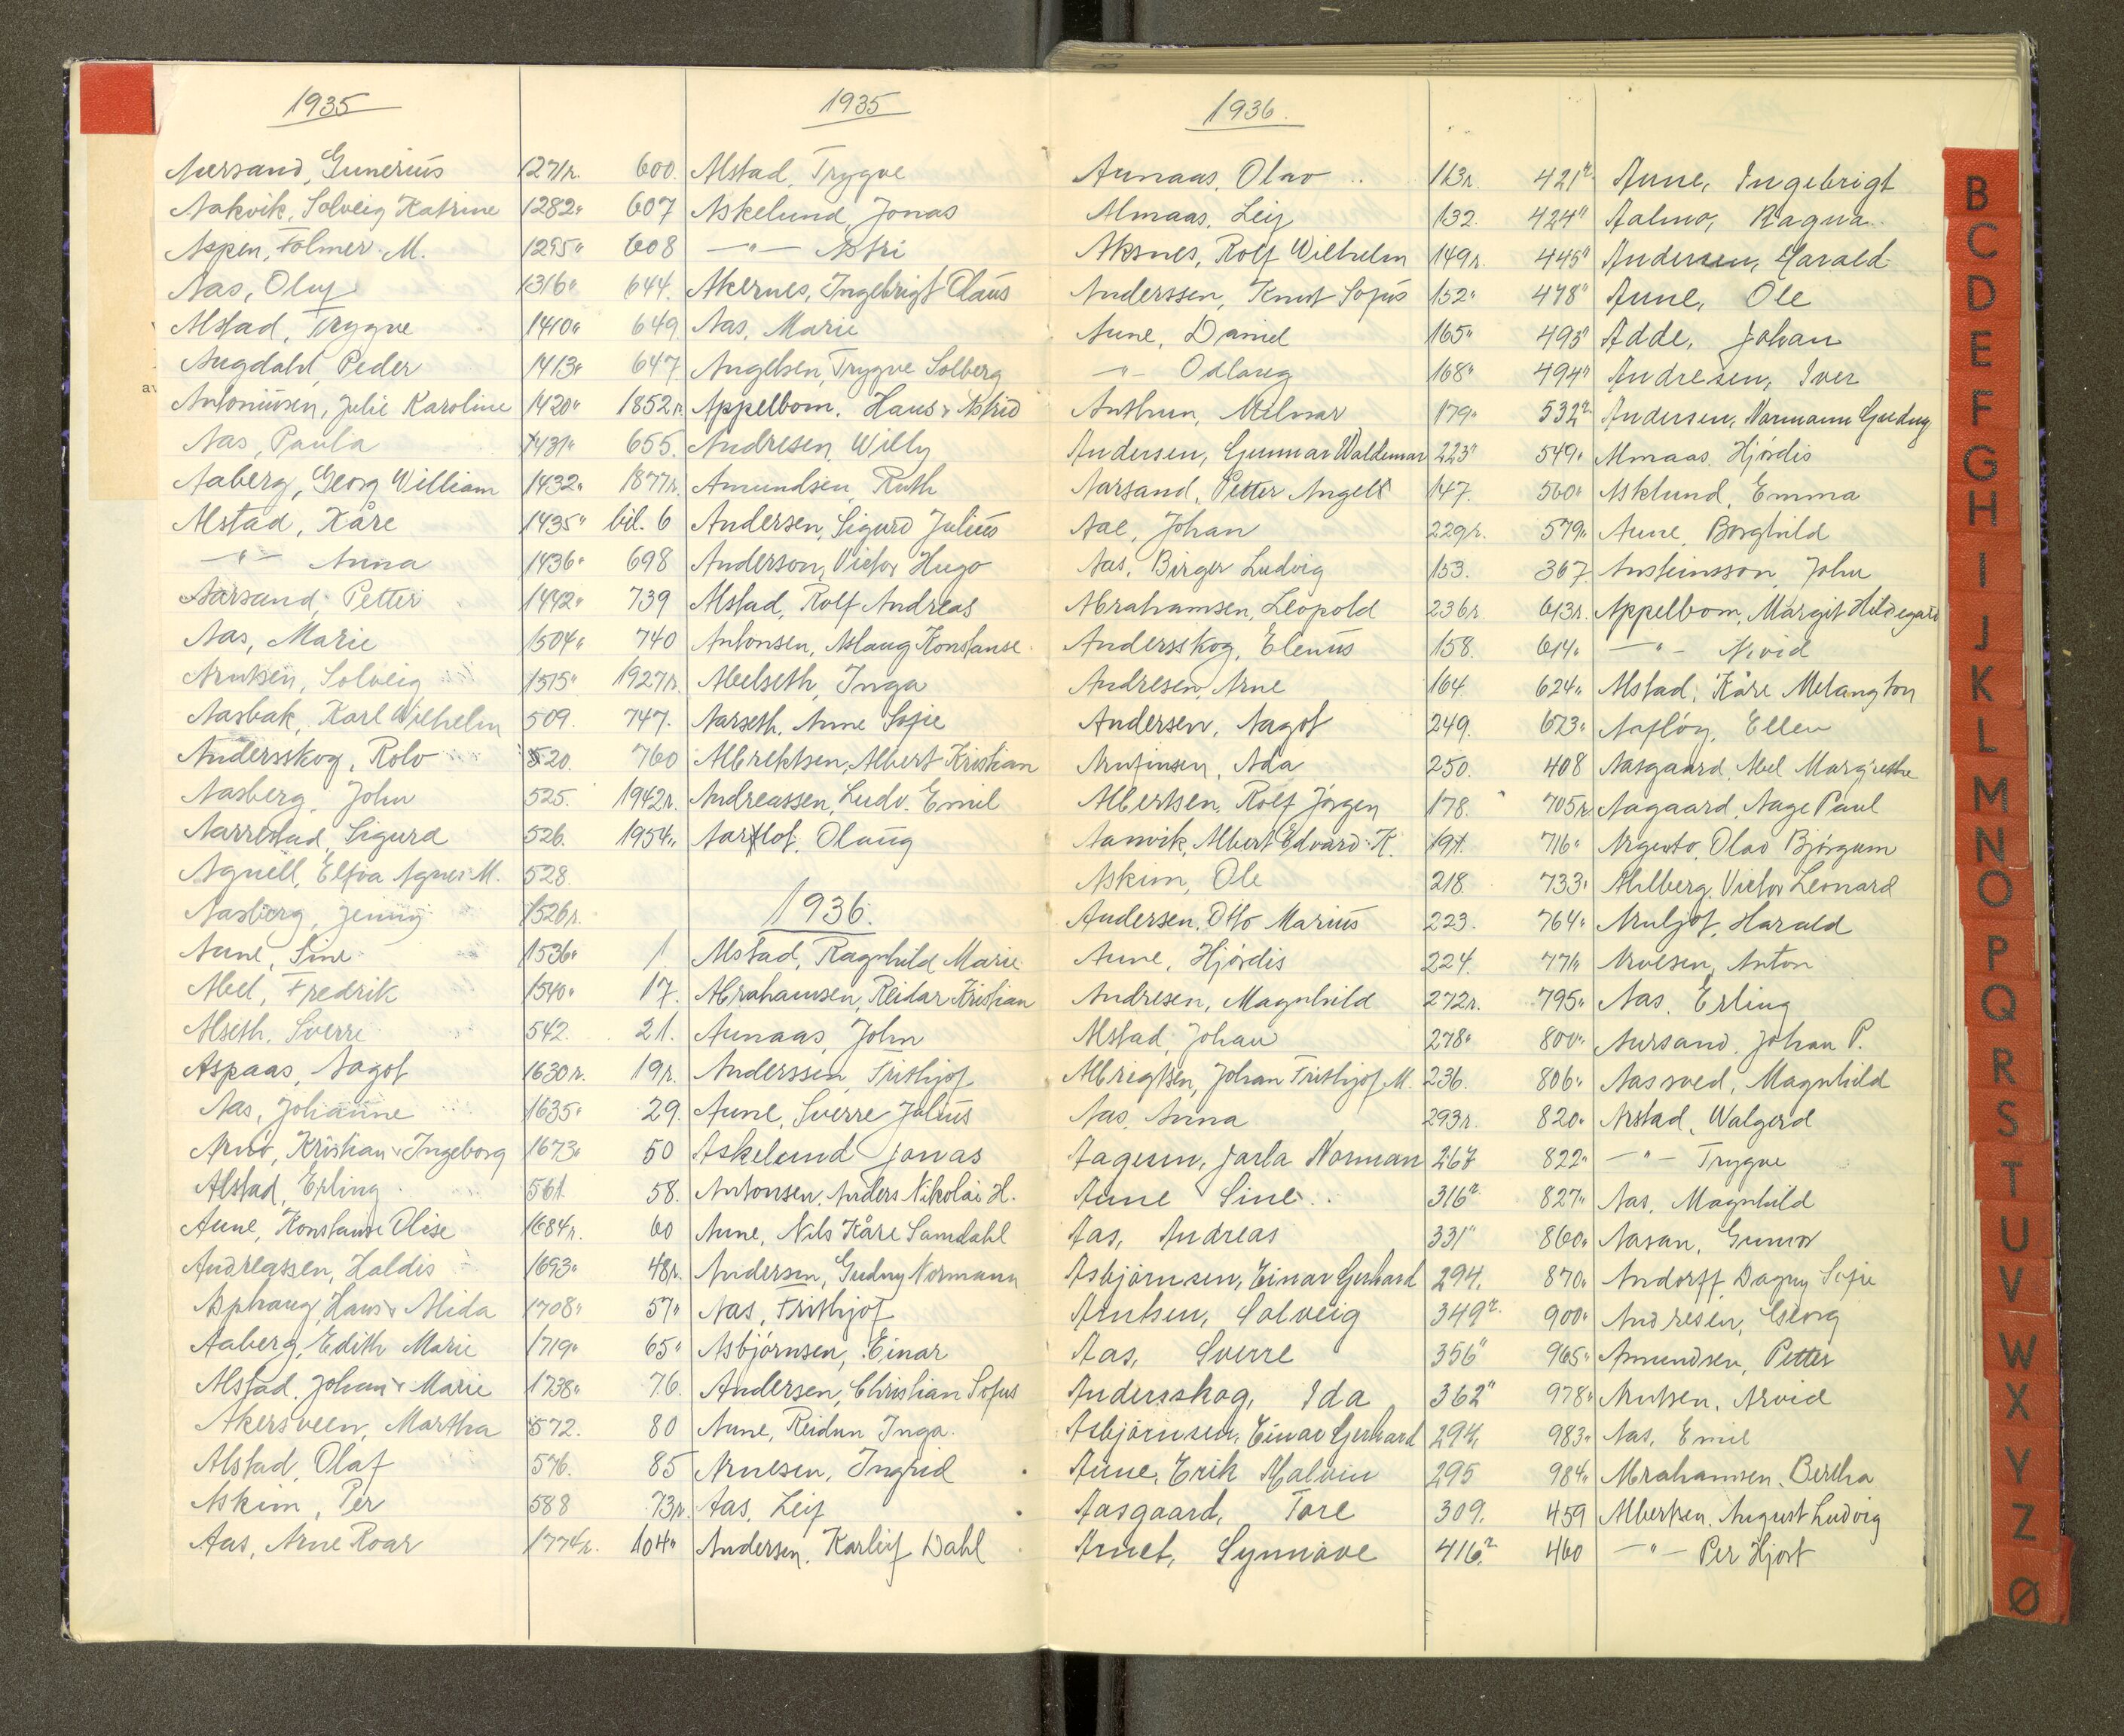 1935
Aursand, Gunerius 1271r.
Aakvik, Solveig Katrine 1282"
Aspen, Folmer M. 1295"
Aas, Oluf 1316"
Alstad, Trygve 1410"
Augdahl, Peder 1413"
Antoniusen, Julie Karoline 1420"
Aas, Paula 1431"
Aaberg, Georg William 1432"
Alstad, Kåre 1435"
—"— Anna 1436"
Aarsand, Petter 1492"
Aas, Marie 1504"
Arntsen, Solveig 1515"
Aasbak, Karl Wilhelm 509.
Andersskog, Rolv 520.
Aasberg, John 525.
Aarrestad, Sigurd 526.
Agnell, Elfva Agnes M. 528
Aasberg, Jenny 1526r.
Aune, Sine 1536"
Abel, Fredrik 1540"
Alseth, Sverre 542.
Aspaas, Aagot 1630r.
Aas, Johanne 1635"
Arnø, Kristian & Ingeborg 1673"
Alstad, Erling 561
Aune, Konstanse Olise 1684r.
Andreassen, Haldis 1693"
Asphaug, Hans & Alida 1708"
Aaberg, Edith Marie 1719"
Alstad, Johan & Marie 1738"
Akersveen, Martha 572.
Alstad, Olaf 576.
Askim, Per 588
Aas, Arne Roar 1774r.
1935
600. Alstad, Trygve
607 Askelund, Jonas
608 —"— Astri
644. Akernes, Ingebrigt Olaus
649 Aas, Marie
647 Angelsen, Trygve Solberg
1852r. Appelbom, Hans & Astrid
655. Andresen, Willy
1877r. Amundsen, Ruth
bil. 6 Andersen, Sigurd Julius
698 Anderson, Victor Hugo
739 Alstad, Rolf Andreas
740 Antonsen, Aslaug Konstanse
1927r. Abelseth, Inga
747. Aarseth, Anne Sofie
760 Albrektsen, Albert Kristian
1942r. Andreassen, Ludv. Emil
1954" Aarflot, Olaug
1936.
1 Alstad, Ragnhild Marie
17. Abrahamsen, Reidar Kristian
21. Aunaas, John
19r. Anderssen, Frithjof
29. Aune, Sverre Julius
50 Askelund Jonas
58. Antonsen, Anders Nikolai H.
60 Aune, Nils Kåre Samdahl
48r. Andersen, Gudny Normann
57" Aas, Frithjof
65" Asbjørnsen, Einar
76. Andersen, Christian Sofus
80 Aune, Reidun Inga.
85 Arnesen, Ingrid
73r. Aas, Leif
104" Andersen, Karleif Dahl
1936.
Aunaas, Olav 113r.
Almaas, Leif 132.
Aksnes, Rolf Wilhelm 149r.
Anderssen, Knut Sofus 152"
Aune, Daniel 165"
—"— Odlaug 168"
Anthun, Melmar 179"
Andersen, Gunnar Waldemar 223"
Aarsand, Petter Angell 147.
Aae, Johan 229r.
Aas, Birger Ludvig 153.
Abrahamsen, Leopold 236r.
Andersskog, Elenus 158.
Andresen, Arne 164
Andersen, Aagot 249.
Arnfinsen, Ada 250.
Albertsen, Rolf Jörgen 178.
Aanvik, Albert Edvard K. 191.
Askim, Ole 218
Andersen, Otto Marius 223.
Aune, Hjørdis 224.
Andresen, Magnhild 272r.
Alstad, Johan 278"
Albrigtsen, Johan Frithjof M. 236.
Aas, Anna 293r.
Aagesen, Jarla Norman 267
Aune Sine 316r
Aas, Andreas 331"
Asbjørnsen, Einar Gerhard 294.
Arntsen, Solveig 349r.
Aas, Sverre 356"
Andersskog, Ida 362"
Asbjørnsen, Einar Gerhard 294.
Aune, Erik Malvin 295
Aasgaard, Tore 309.
Arnet, Synnøve 416r
421r. Aune, Ingebrigt
424" Aalmo, Ragna
445" Andersen, Harald
478" Aune, Ole
493" Adde, Johan
494" Andresen, Iver
532r. Andersen, Normann Gudny
549" Almaas, Hjördis
560" Asklund, Emma
579" Aune, Borghild
367. Austeinsson, John
613r. Appelbom, Margit Hildegard
614" —"— Arvid
624" Alstad, Kåre Melangton
673" Aafløy, Ellen
408 Aasgaard, Abel Margrethe
705r. Aagaard, Aage Paul
716" Olav Bjørgum
733" Ahlberg, Victor Leonard
764" Arnljot, Harald
771" Arvesen, Anton
795" Aas, Erling
800" Aursand, Johan P.
806" Aassved, Magnhild
820" Arstad, Walgerd
822" —"— Trygve
827" Aas, Magnhild
860" Aasan, Gunvor
870" Andorff, Dagny Sofie
900" Andresen, Georg
965" Amundsen, Petter
978" Arntsen, Arvid
983" Aas, Emil
984" Abrahamsen, Bertha
459 Albertsen, August Ludvig
460 —"— Per Hjort
B
C
D
E
F
G
H
I
J
K
L
M
N
O
P
Q
R
S
T
U
V
W
X
Y
Z
Ø